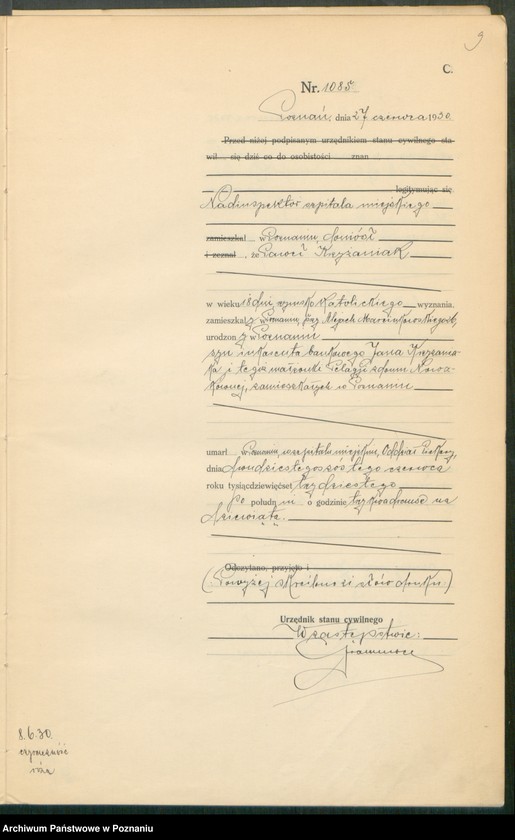 9
C.
Nr. 1085
Poznań, dnia 27 czerwca 1930
Przed niżej podpisanym urzędnikiem stanu cywilnego sta-
wił się dziś co do osobistości znan
legitymując się
Nadinspektor szpitala miejskiego
zamieszkał w Poznaniu, doniósł
i zeznał, że Paweł Krzyżaniak
w wieku 18 dni, rzymsko katolickiego wyznania.
zamieszkał w Poznaniu, przy Alejach Marcinkowskiego
urodzon w Poznaniu
syn inkasenta bankowego Jana Krzyżania-
ka i tegoż małżonki Pelagji z domu Nowa-
kowej, zamieszkałych w Poznaniu
umarł w Poznaniu, w szpitalu miejskim, Oddział
dnia dwudziestego szóstego czerwca
roku tysiącdziewięćset trzydziestego
po połudn iu o godzinie trzy kwadranse na
dziewiątą.
Odczytano, przyjęto i
(Powyżej skreślono słów druku.)
Urzędnik stanu cywilnego
W zastępstwie:
8.6.30.
Archiwum Państwowe w Poznaniu